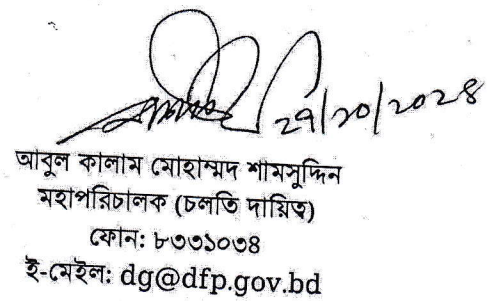 ২৭/১০/২০২৪
আবুল কালাম মোহাম্মদ শামসুদ্দিন
মহাপরিচালক (চলতি দায়িত্ব)
ফোন: ৮৩৩১০৩৪
ই-মেইল: dg@dfp.gov.bd